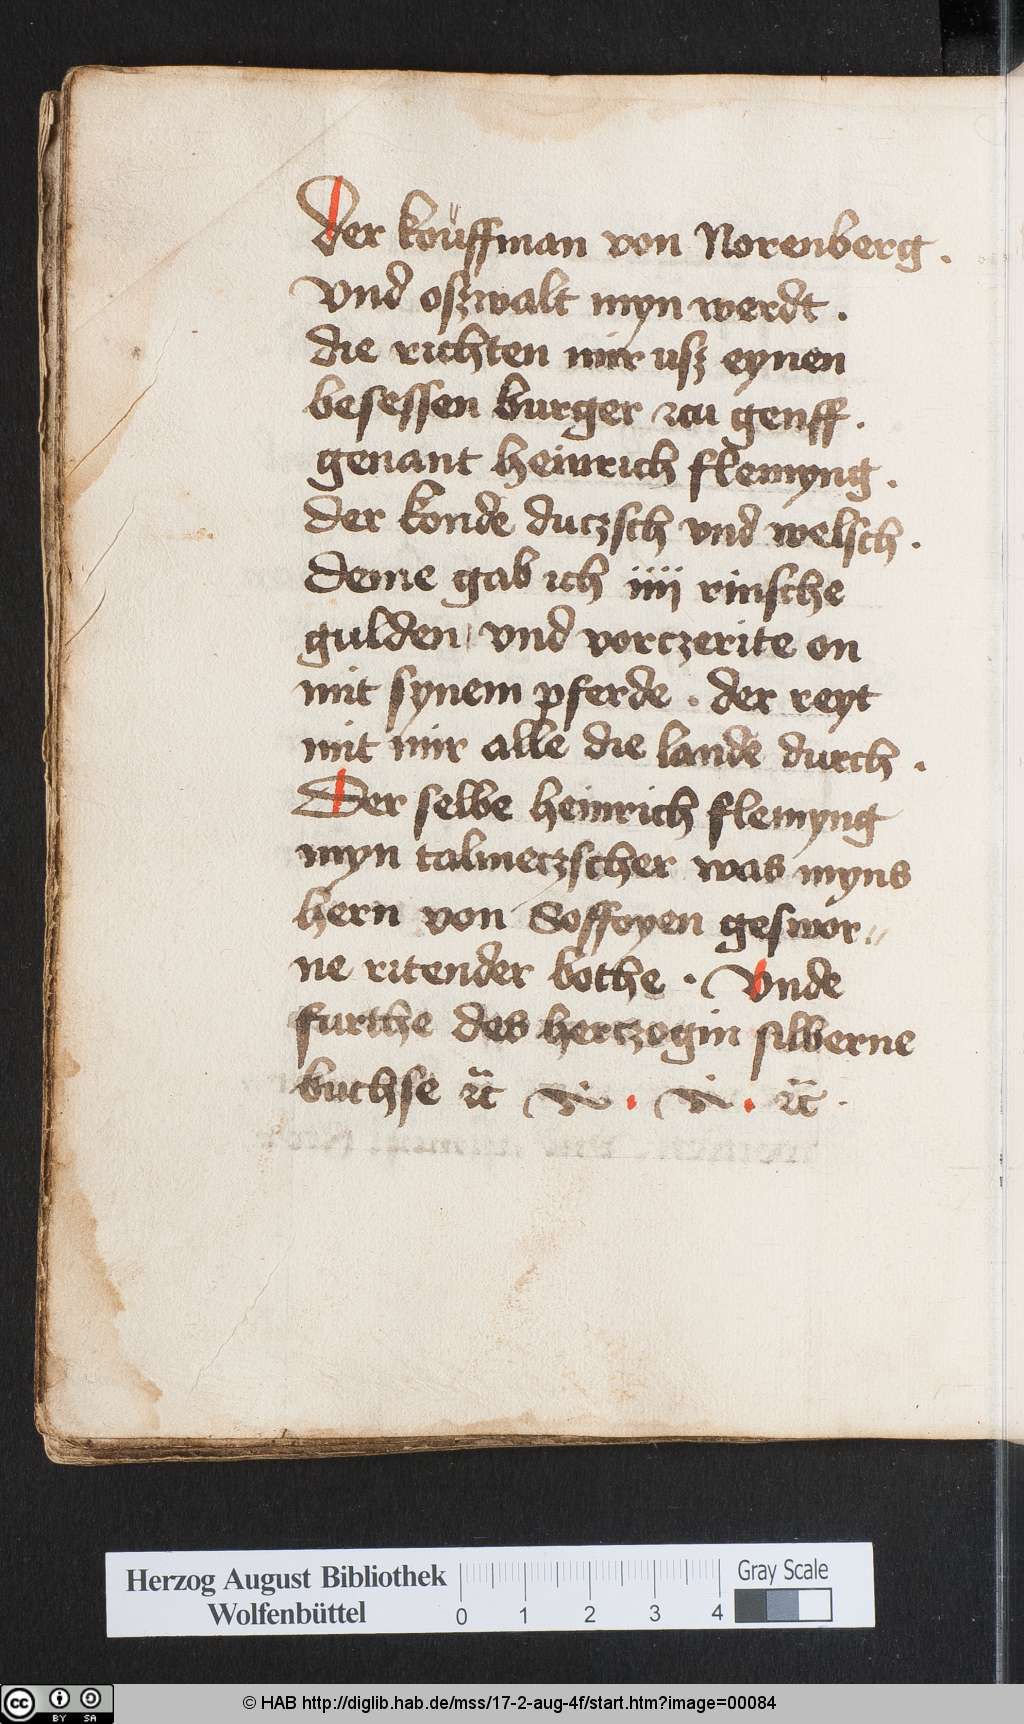 Der koüffman von Norenberg .
vnd oszwalt myn werdt .
die richten mir usz eynen
besessen burger zcu genff .
genant heinrich flemyng .
der konde duczsch vnd welsch .
deme gab ich iiij rinsche
gulden vnd vorczerite on
mit synem pferde . der reyt
mit mir alle die lande durch .
Der selbe heinrich flemyng
myn talmeczscher was myns
hern von Soffoyen geswor⸗
ne ritender bothe . Vnde
furthe des herczogin silberne
buchse ꝛc̈ ꝛc̈ .
Herzog August Bibliothek
Wolfenbüttel
0 1 2 3 4
Gray Scale
cc BY SA
© HAB http://diglib.hab.de/mss/17-2-aug-4f/start.htm?image=00084